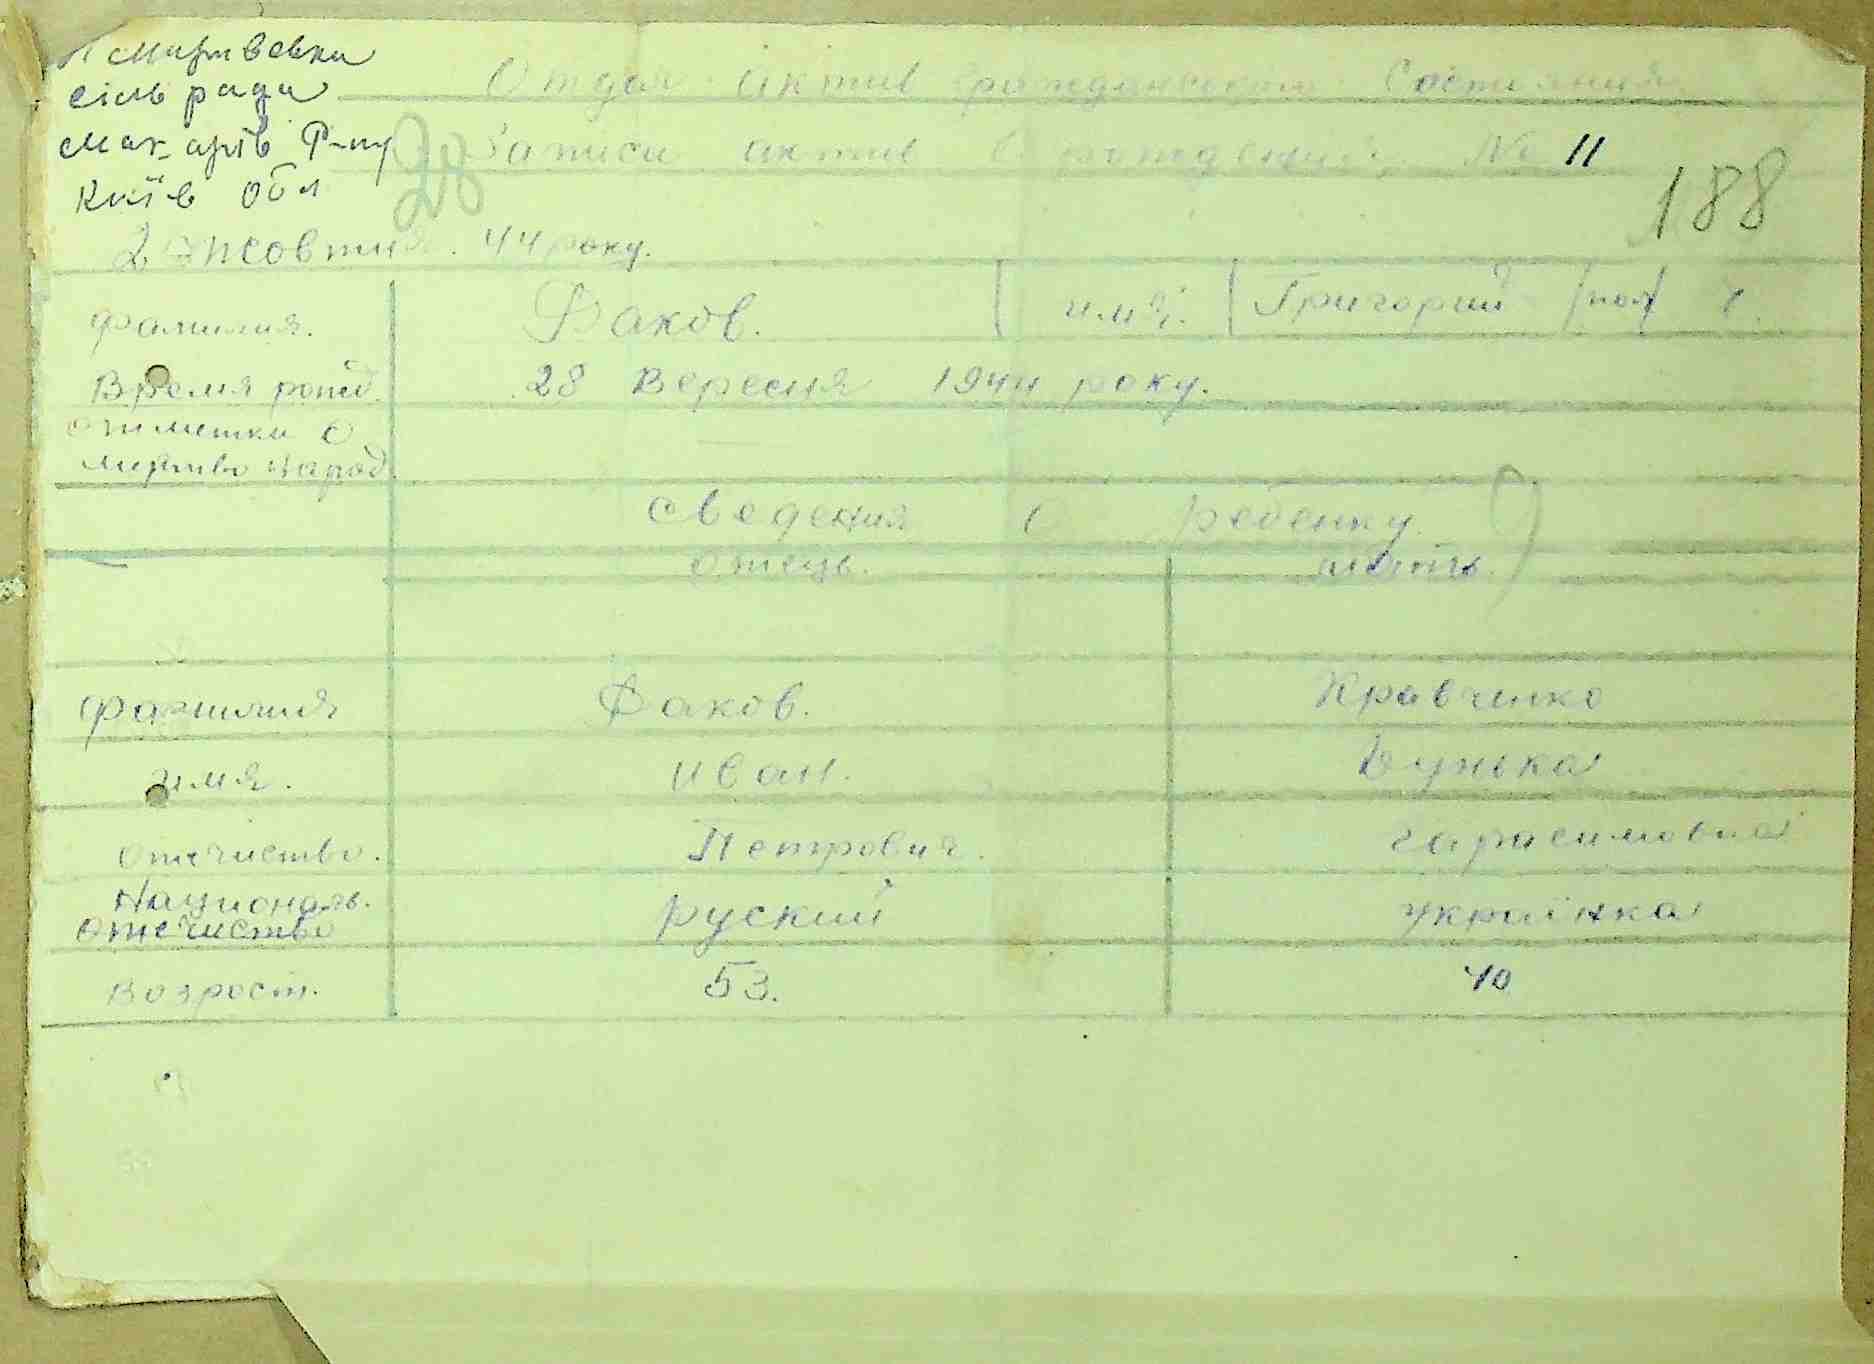 сільради
Макарів Р-ну
Київ обл
28
Отдел актив гражданского состояния
Записи актив о рождении, № 11
188
2 жовтня. 44 року.
фамилия. Факов. имя. Григорий пол ч.
Время рожд. 28 Вересня 1944 року.
отметки о
мертво народ.
сведения о ребенку
отець. мать.
фамилия Факов. Кравченко
имя. иван. Дунька
отечиство. Петрович. гарасимовна
Националь. руский украінка
отечиство
возрост. 53. 40